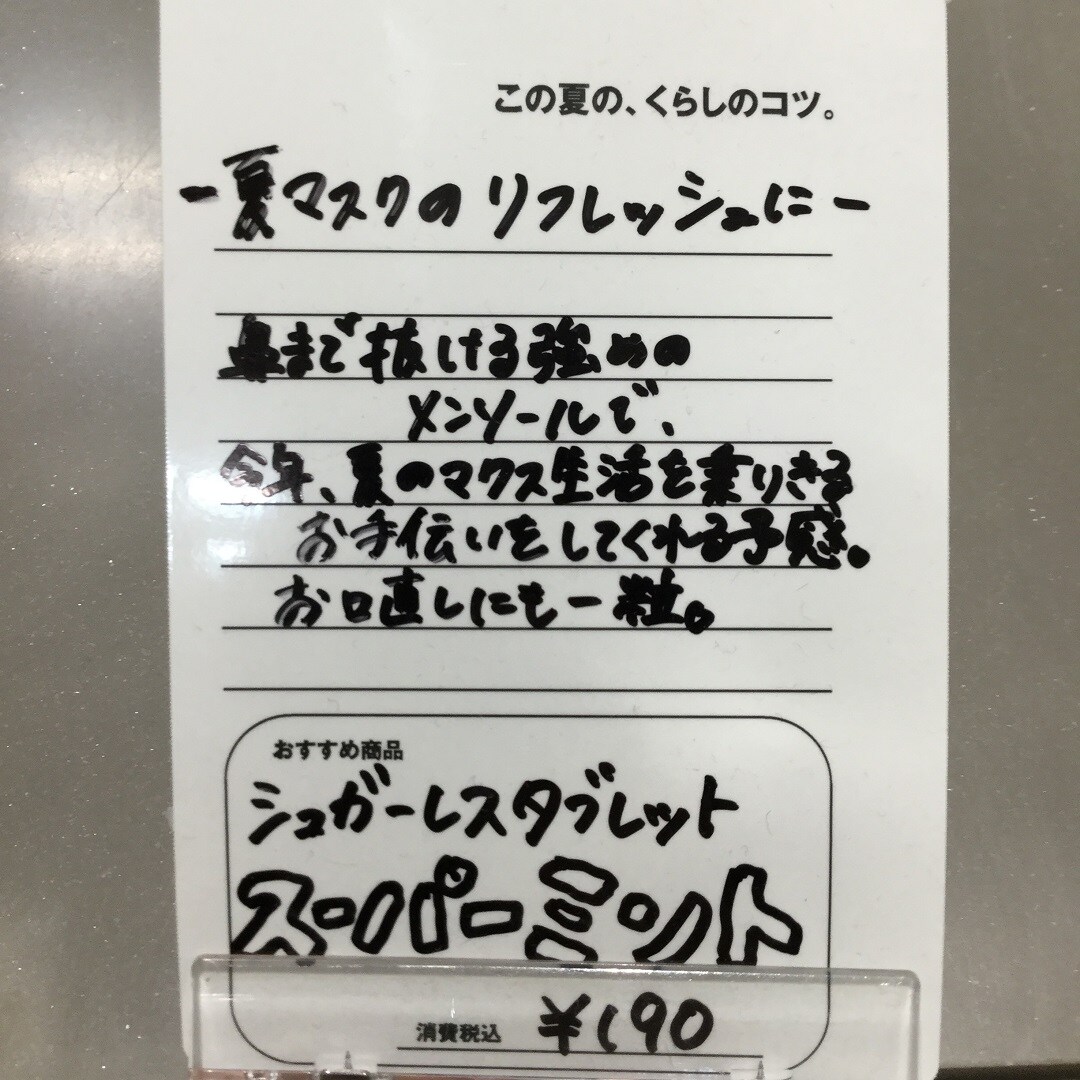 この夏の、くらしのコツ。
ー夏マスクのリフレッシュにー
鼻まで抜ける強めの
メンソールで、
今年、夏のマクス生活を乗りきる
お手伝いをしてくれる予感。
お口直しにも一粒。
おすすめ商品
シュガーレスタブレット
スーパーミント
消費税込 ¥190